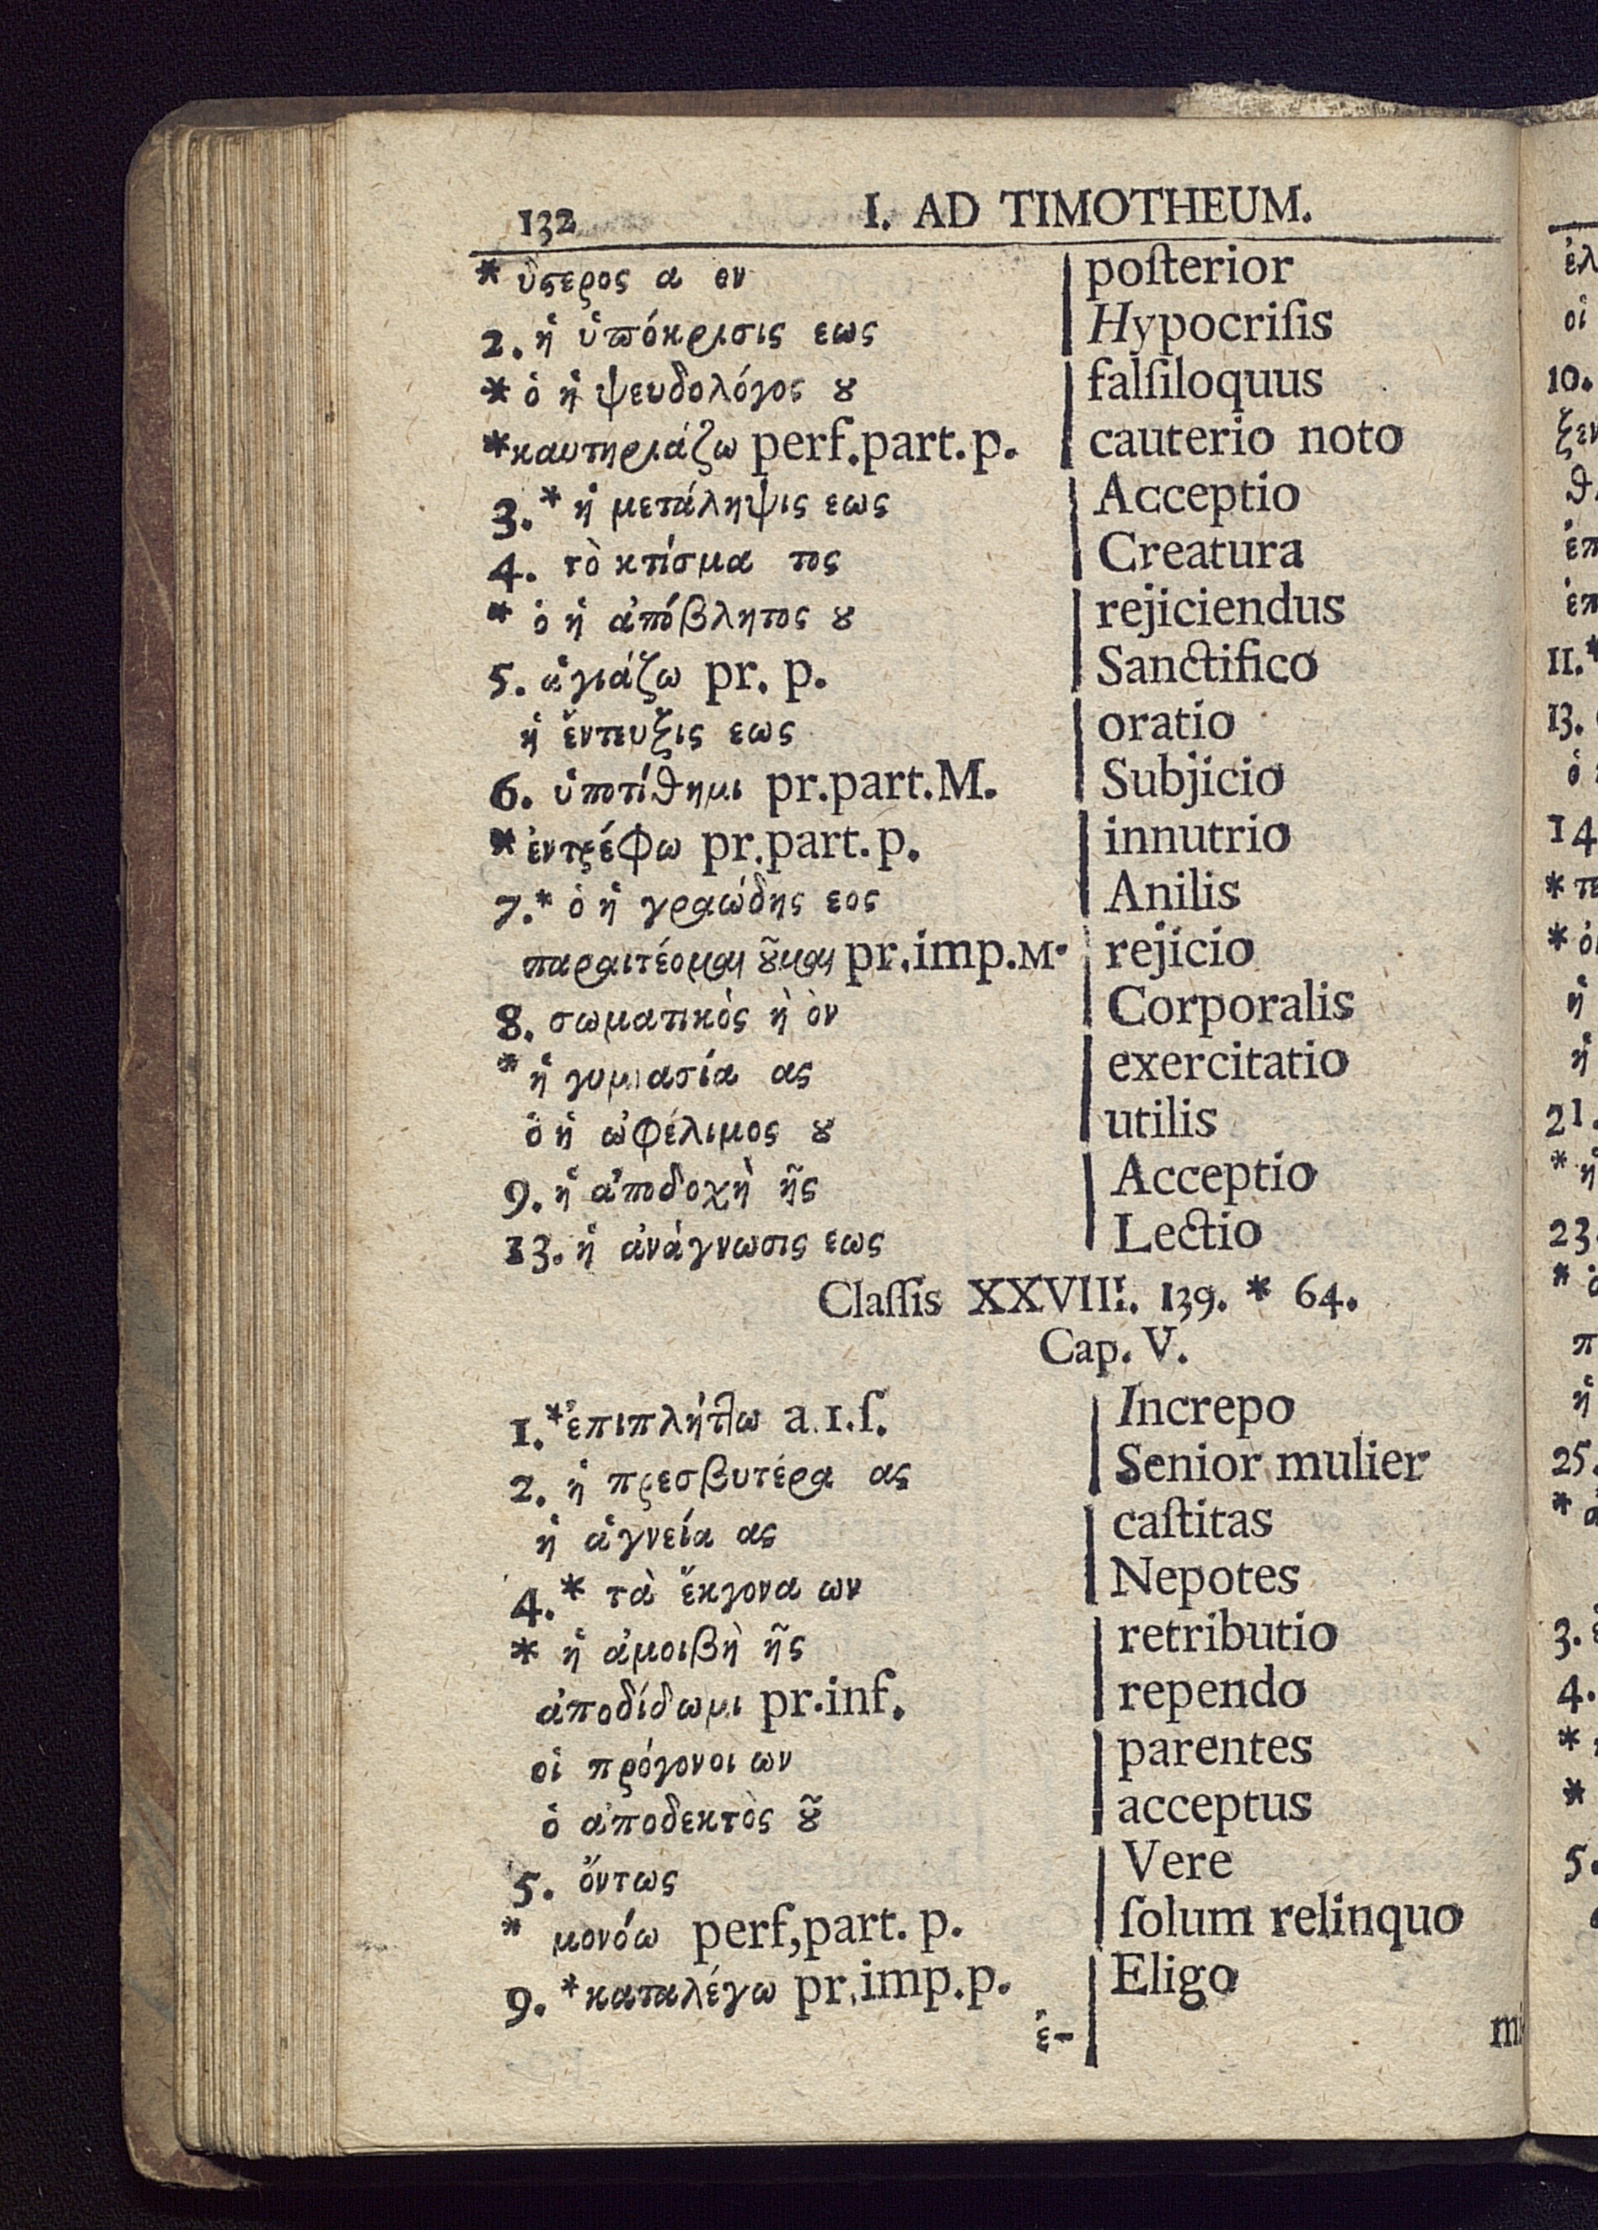 132 I. AD TIMOTHEUM.
* ὕϛερος α ον | poſterior
2. ἡ ὑπόκρισις εως | Hypocriſis
* ὁ ἡ ψευδολόγος ȣ | falſiloquus
*καυτηριάζω perf.part.p. | cauterio noto
3.* ἡ μετάληψις εως | Acceptio
4. τὸ κτίσμα τος | Creatura
* ὁ ἡ ἀπόβλητος ȣ | rejiciendus
5. ἁγιάζω pr. p. | Sanctifico
ἡ ἔντευξις εως | oratio
6. ὑποτίθημι pr.part.M. | Subjicio
* ἐντρέφω pr.part.p. | innutrio
7.* ὁ ἡ γραώδης εος | Anilis
παραιτέομαι ȣ͂μαι pr.imp.M. | rejicio
8. σωματικὸς ὴ ὸν | Corporalis
* ἡ γυμνασία ας | exercitatio
ὁ ἡ ὠφέλιμος ȣ | utilis
9. ἡ ἀποδοχὴ ῆς | Acceptio
13. ἡ ἀνάγνωσις εως | Lectio
Claſſis XXVIII. 139. * 64.
Cap. V.
1.*ἐπιπλήττω a.1.ſ. | Increpo
2. ἡ πρεσβυτέρα ας | Senior mulier
ἡ ἁγνεία ας | caſtitas
4.* τὰ ἔκγονα ων | Nepotes
* ἡ ἀμοιβὴ ῆς | retributio
ἀποδίδωμι pr.inf. | rependo
οἱ πρόγονοι ων | parentes
ὁ ἀποδεκτὸς ȣ͂ | acceptus
5. ὄντως | Vere
* μονόω perf,part. p. | ſolum relinquo
9. *καταλέγω pr.imp.p. | Eligo
ἐ- |